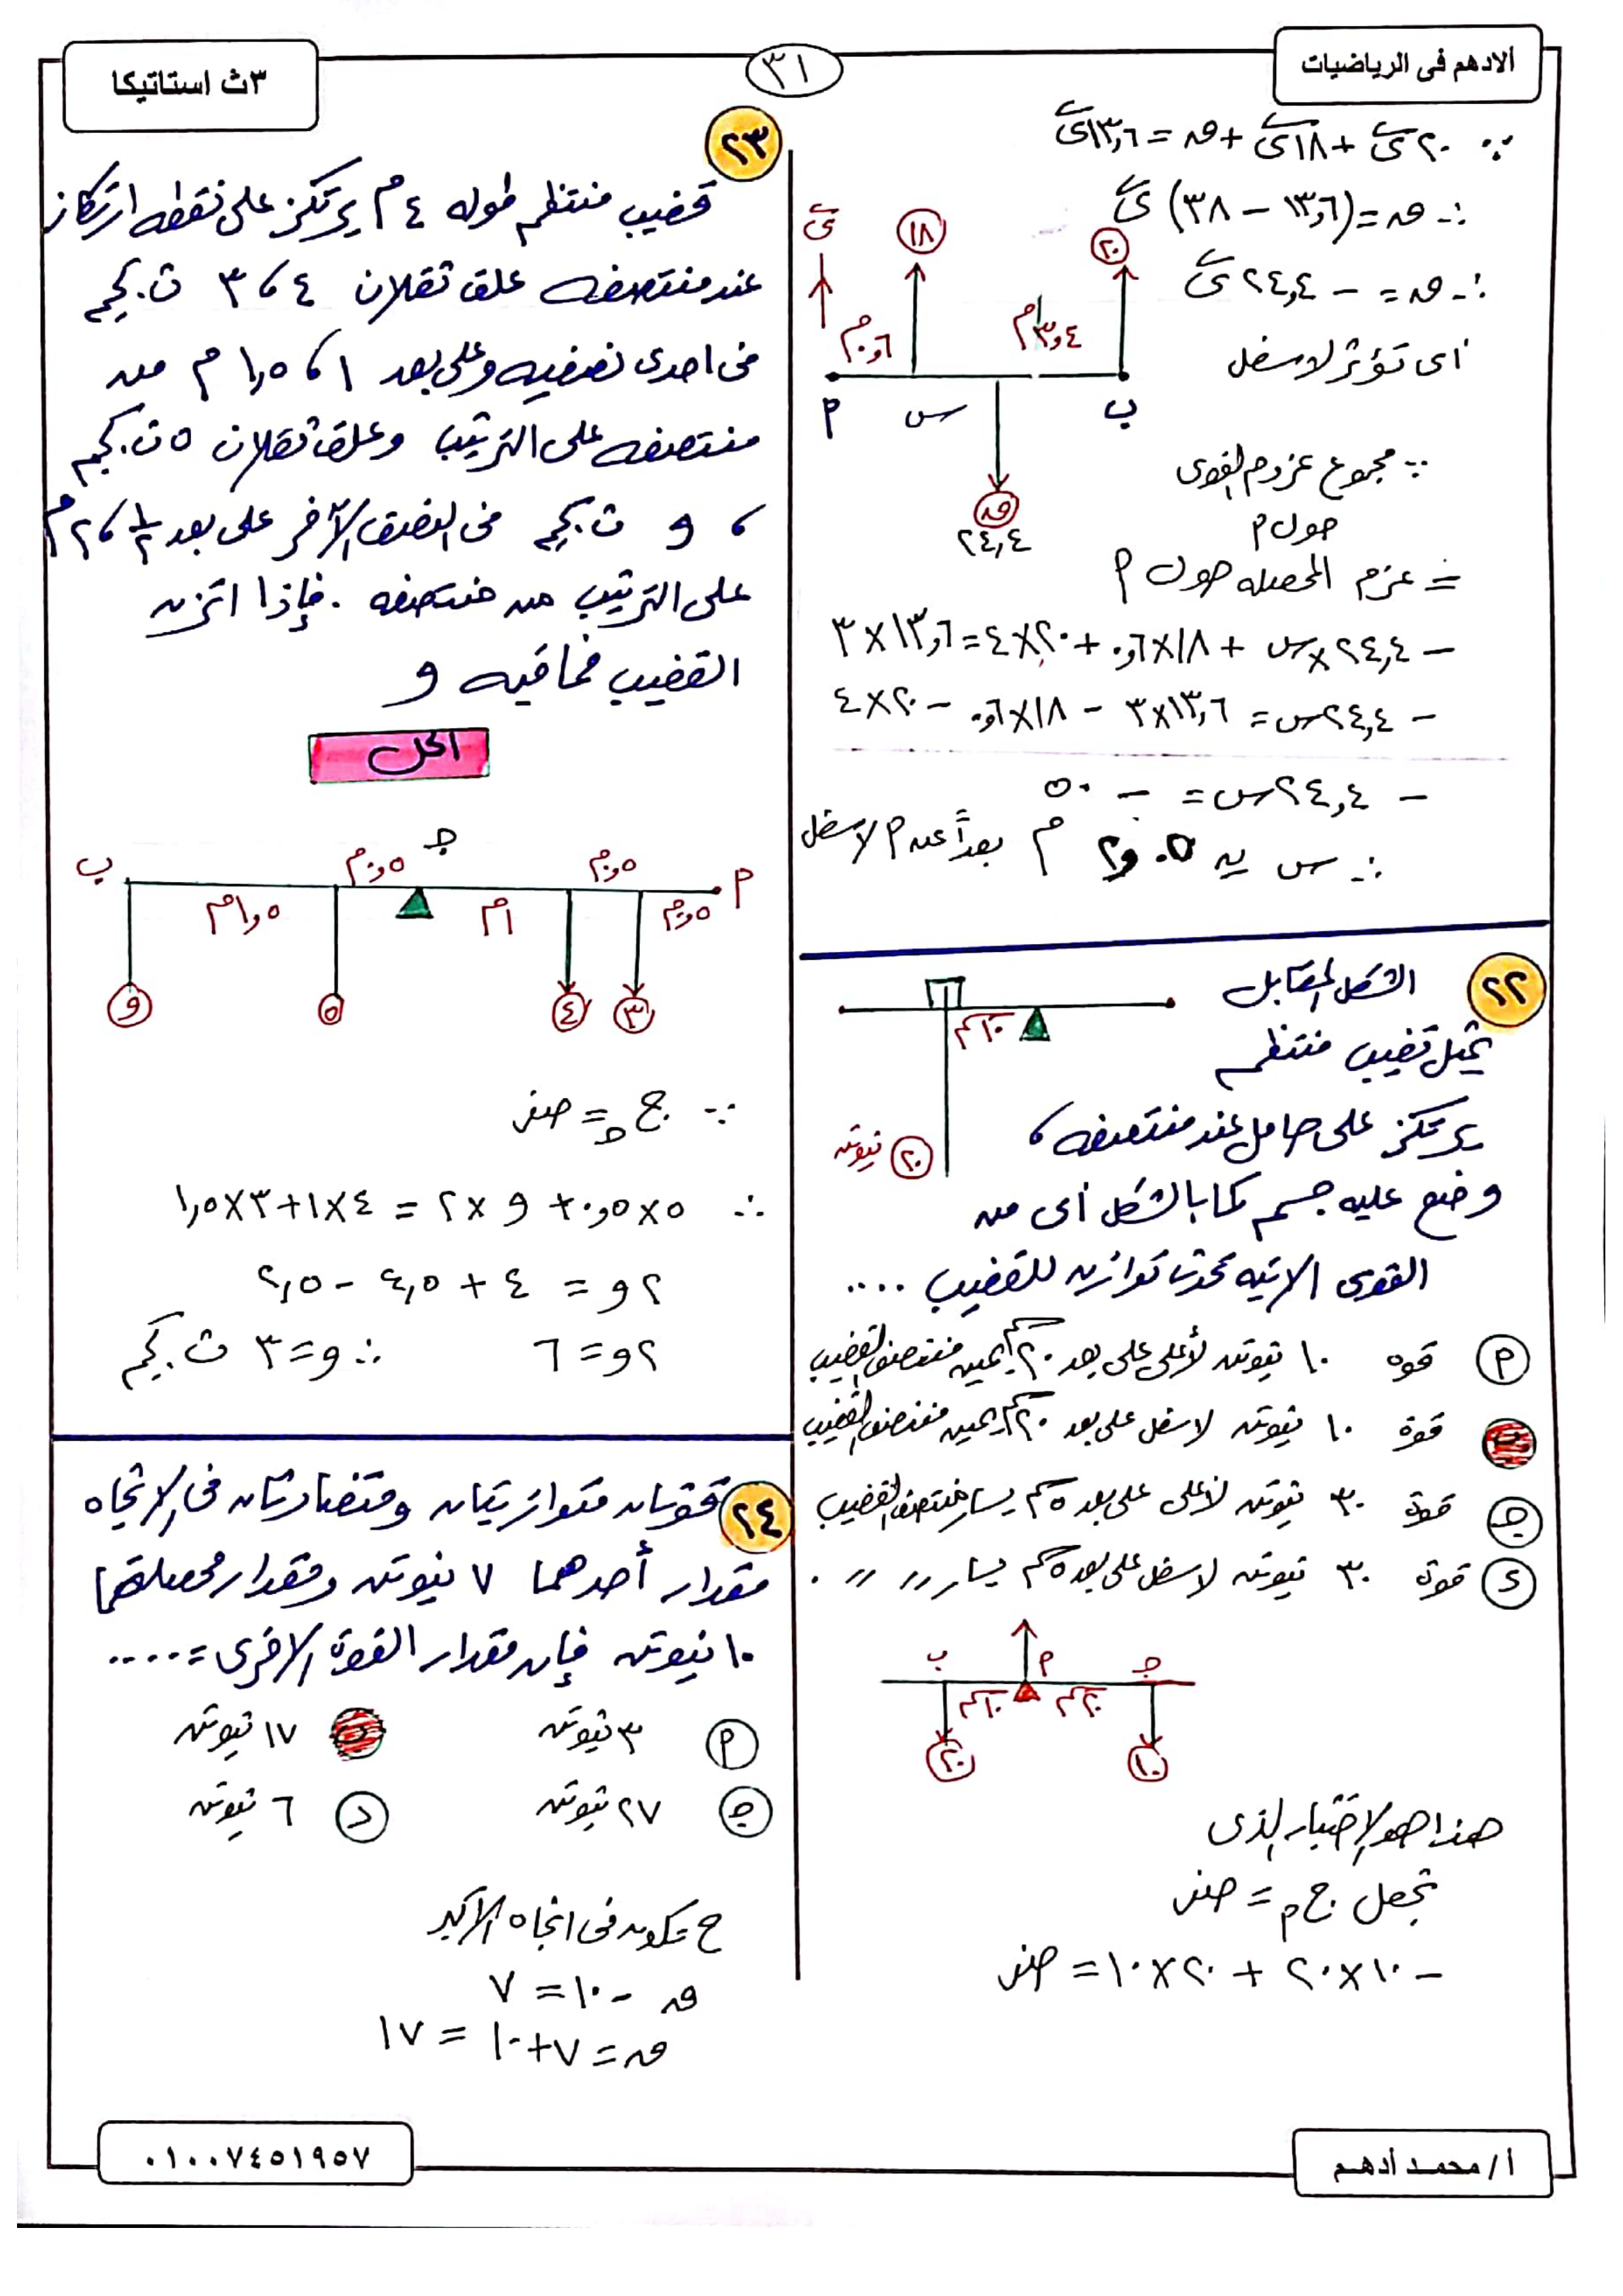 الادهم فى الرياضيات
٣١
٣ث استاتيكا
∵ ٢٠ ى + ١٨ ى + ق = ١٣,٦ ى
∴ ق = (١٣,٦ − ٣٨) ى
∴ ق = − ٢٤,٤ ى
أى تؤثر لاسفل
ى
١٨
٢٠
٠,٦ م
٣,٤ م
م
س
ب
ق
٢٤,٤
∵ مجموع عزوم القوى
حول م
= عزم المحصله حول م
− ٢٤,٤ × س + ١٨ × ٠,٦ + ٢٠ × ٤ = ١٣,٦ × ٣
− ٢٤,٤ س = ١٣,٦ × ٣ − ١٨ × ٠,٦ − ٢٠ × ٤
− ٢٤,٤ س = − ٥٠
∴ س = ٢,٠٥ م بعداً عن م لاسفل
٢٢
الشكل المقابل
يمثل قضيب منتظم
يرتكز على حامل عند منتصفه ،
وضع عليه جسم كما بالشكل أى من
القوى الاتيه تحدث توازن للقضيب ....
١٠ سم
٢٠ نيوتن
م قوه ١٠ نيوتن لأعلى على بعد ٢٠ سم يمين منتصف القضيب
ب قوة ١٠ نيوتن لاسفل على بعد ٢٠ سم يمين منتصف القضيب
ج قوة ٣٠ نيوتن لأعلى على بعد ٥ سم يسار منتصف القضيب
د قوة ٣٠ نيوتن لاسفل على بعد ٥ سم يسار // // .
ب
م
ج
١٠ سم
٢٠ سم
٢٠
١٠
هذا هو الاختيار الذى
تجعل ج م = صفر
− ١٠ × ٢٠ + ٢٠ × ١٠ = صفر
٢٣
قضيب منتظم طوله ٤ م يرتكز على نقطه ارتكاز
عند منتصفه علق ثقلان ٤ ، ٣ ث.كجم
فى احدى نصفيه وعلى بعد ١ ، ١,٥ م من
منتصفه على الترتيب وعلق ثقلان ٥ ث.كجم
، و ث.كجم فى النصف الآخر على بعد ½ ، ٢ م
على الترتيب من منتصفه . فإذا اتزن
القضيب فما قيمه و
الحل
ب
٠,٥ م
ج
٠,٥ م
م
١,٥ م
١ م
٠,٥ م
و
٥
٤
٣
∵ ج ج = صفر
∴ ٥ × ٠,٥ + و × ٢ = ٤ × ١ + ٣ × ١,٥
٢ و = ٤ + ٤,٥ − ٢,٥
٢ و = ٦ ∴ و = ٣ ث.كجم
٢٤
قوتان متوازيتان ومتضادتان فى الاتجاه
مقدار أحدهما ٧ نيوتن ومقدار محصلتهما
١٠ نيوتن فإن مقدار القوة الاخرى = ....
م ٣ نيوتن
ب ١٧ نيوتن
ج ٢٧ نيوتن
د ٦ نيوتن
ح تكون فى اتجاه الاكبر
ق − ١٠ = ٧
ق = ٧ + ١٠ = ١٧
أ / محمد أدهم
٠١٠٠٧٤٥١٩٥٧